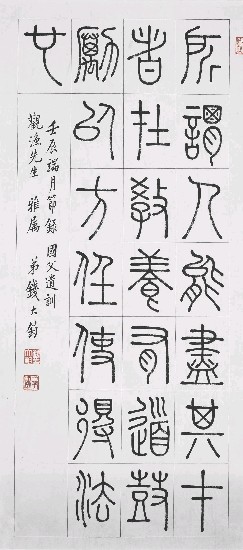 所謂人能盡其才
者在教養有道鼓
勵以方任使得法
也
壬辰瑞月節錄 國父遺訓
觀漁先生 雅屬 弟錢大鈞